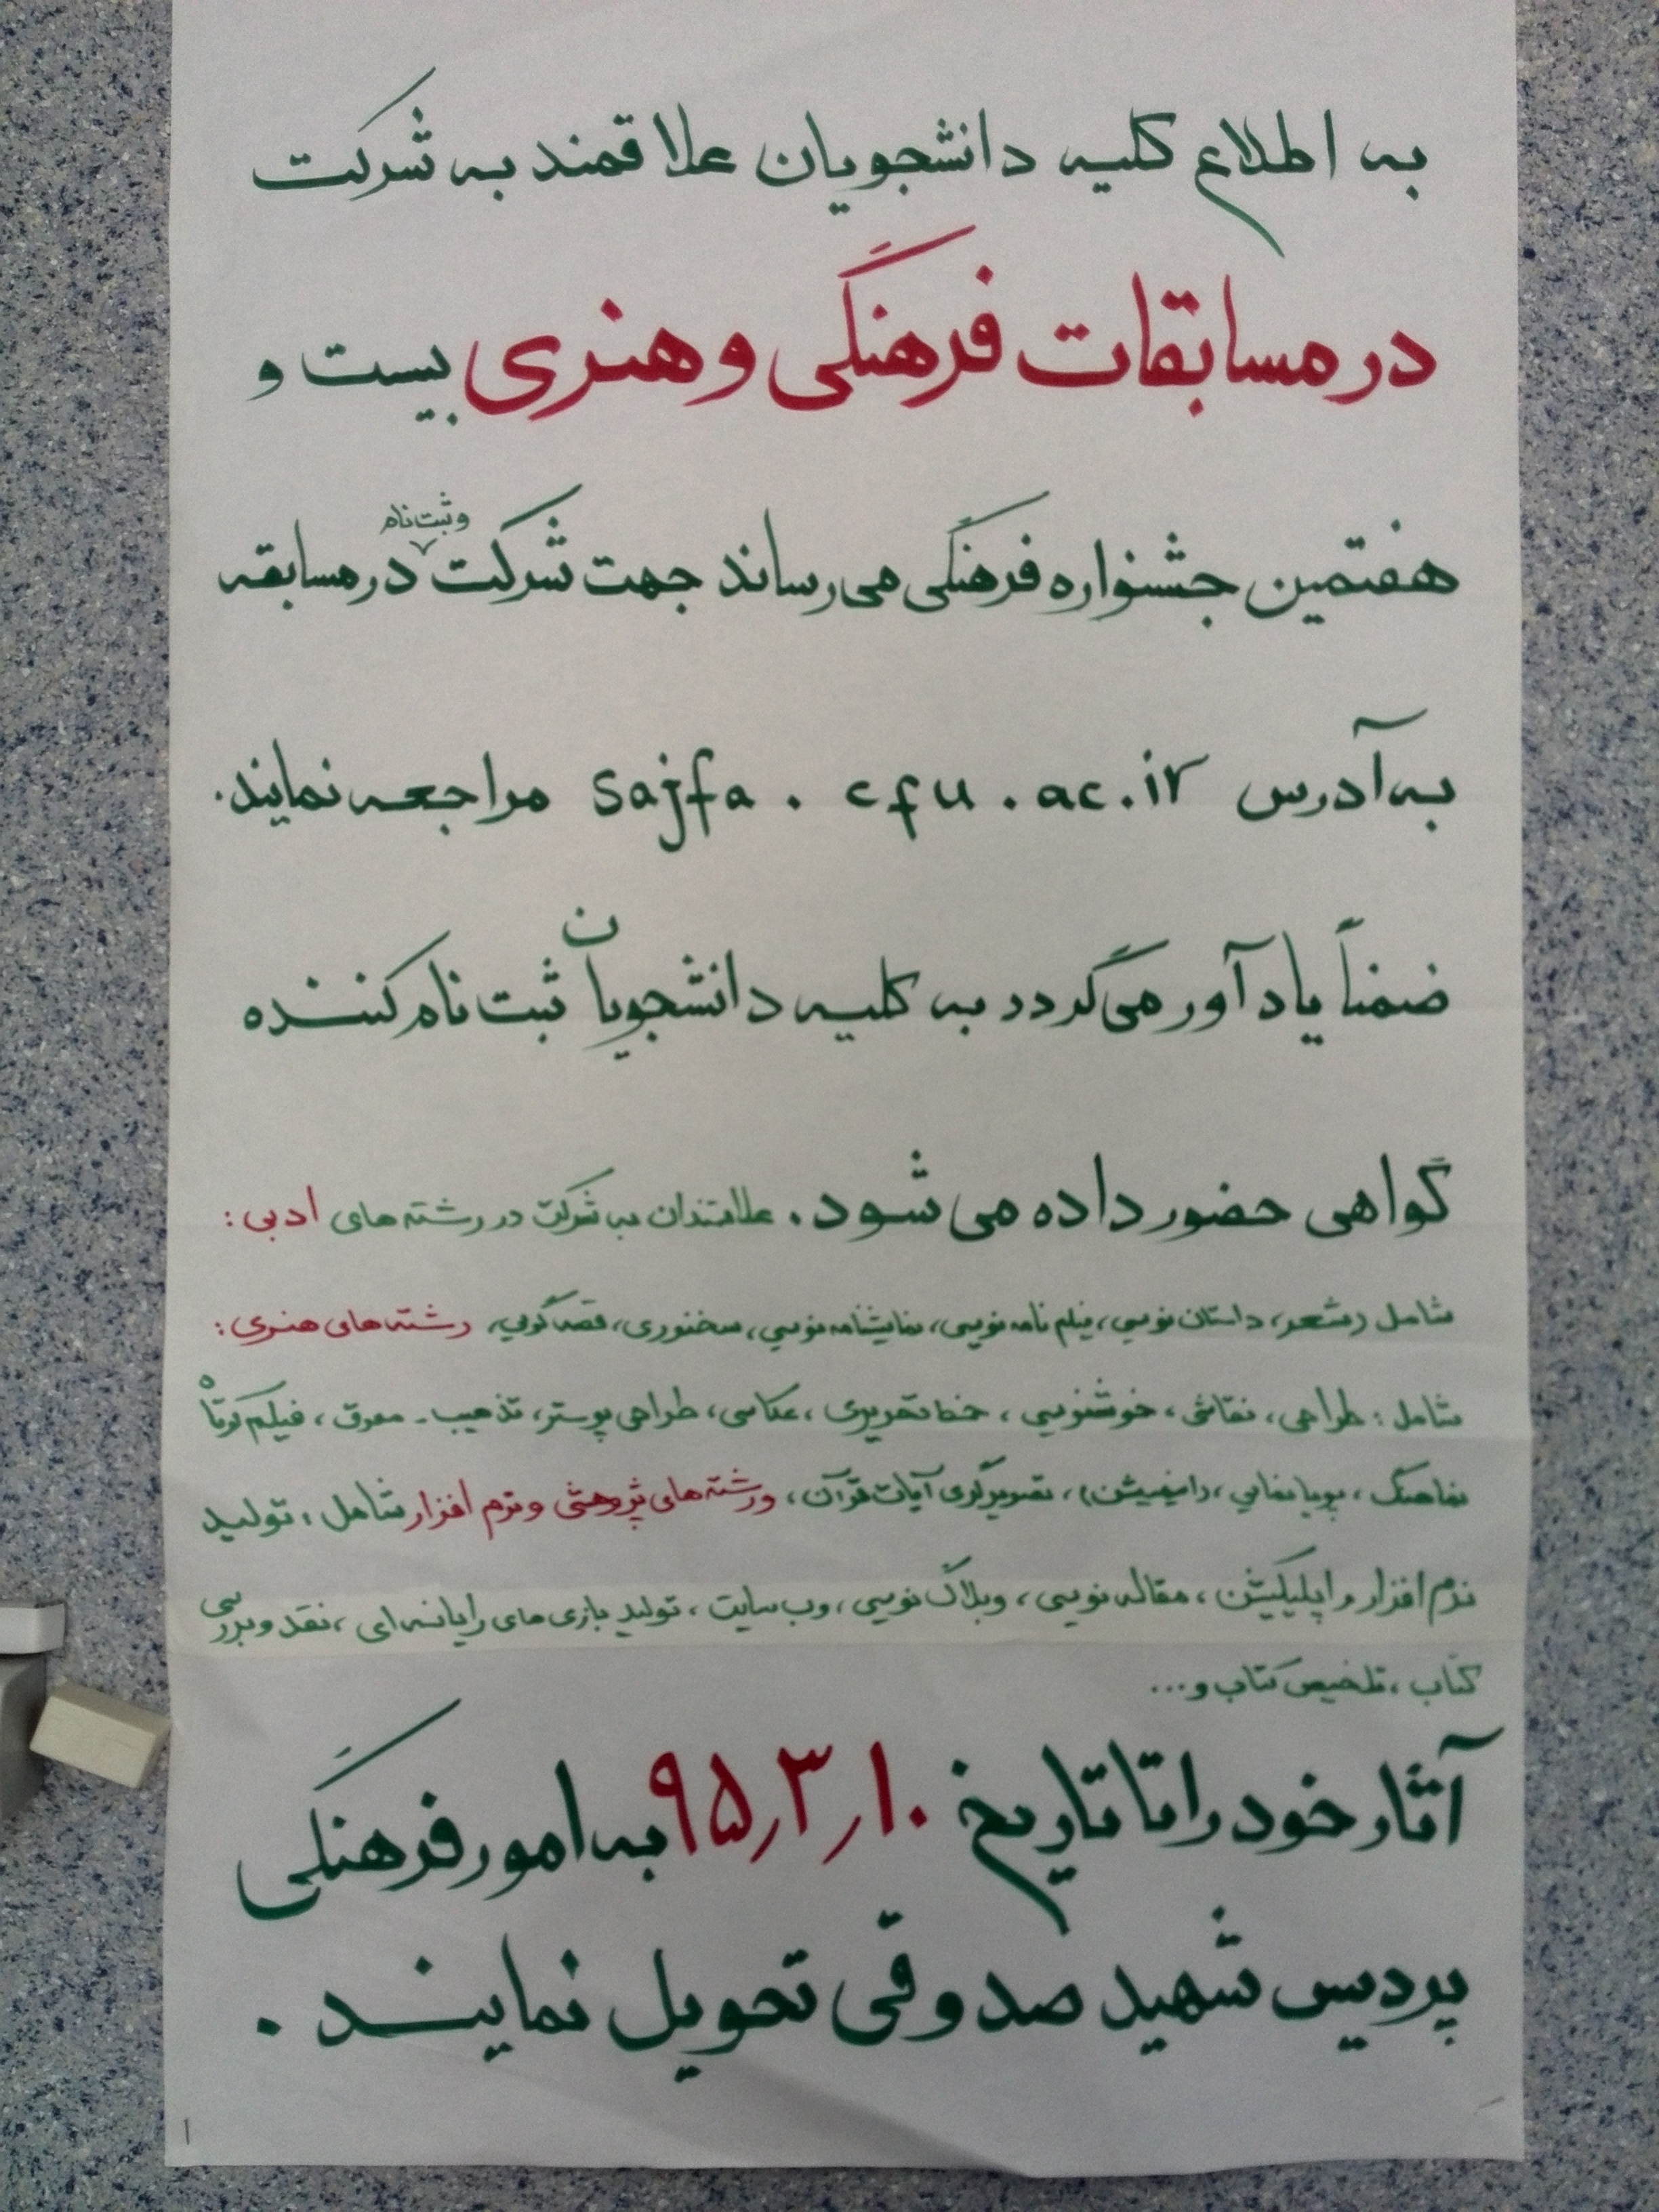 به اطلاع کلیه دانشجویان علاقمند به شرکت
در مسابقات فرهنگی و هنری بیست و
هفتمین جشنواره فرهنگی می‌رساند جهت شرکت و ثبت نام در مسابقه
به آدرس sajfa . cfu . ac . ir مراجعه نمایند.
ضمناً یادآور می‌گردد به کلیه دانشجویان ثبت نام کننده
گواهی حضور داده می شود. علاقمندان به شرکت در رشته های ادبی :
شامل (شعر، داستان نویسی، فیلم نامه نویسی، نمایشنامه نویسی، سخنوری، قصه گویی، رشته های هنری :
شامل : طراحی، نقاشی، خوشنویسی، خط تحریری، عکاسی، طراحی پوستر، تذهیب - معرق، فیلم کوتاه
نماهنگ، پویا نمایی، (انیمیشن)، تصویرگری آیات قرآن، و رشته های پژوهشی و نرم افزار شامل : تولید
نرم افزار و اپلیکیشن، مقاله نویسی، وبلاگ نویسی، وب سایت، تولید بازی های رایانه ای، نقد و بررسی
کتاب، تلخیص کتاب و...
آثار خود را تا تاریخ ۹۵٫۳٫۱۰ به امور فرهنگی
پردیس شهید صدوقی تحویل نمایند .